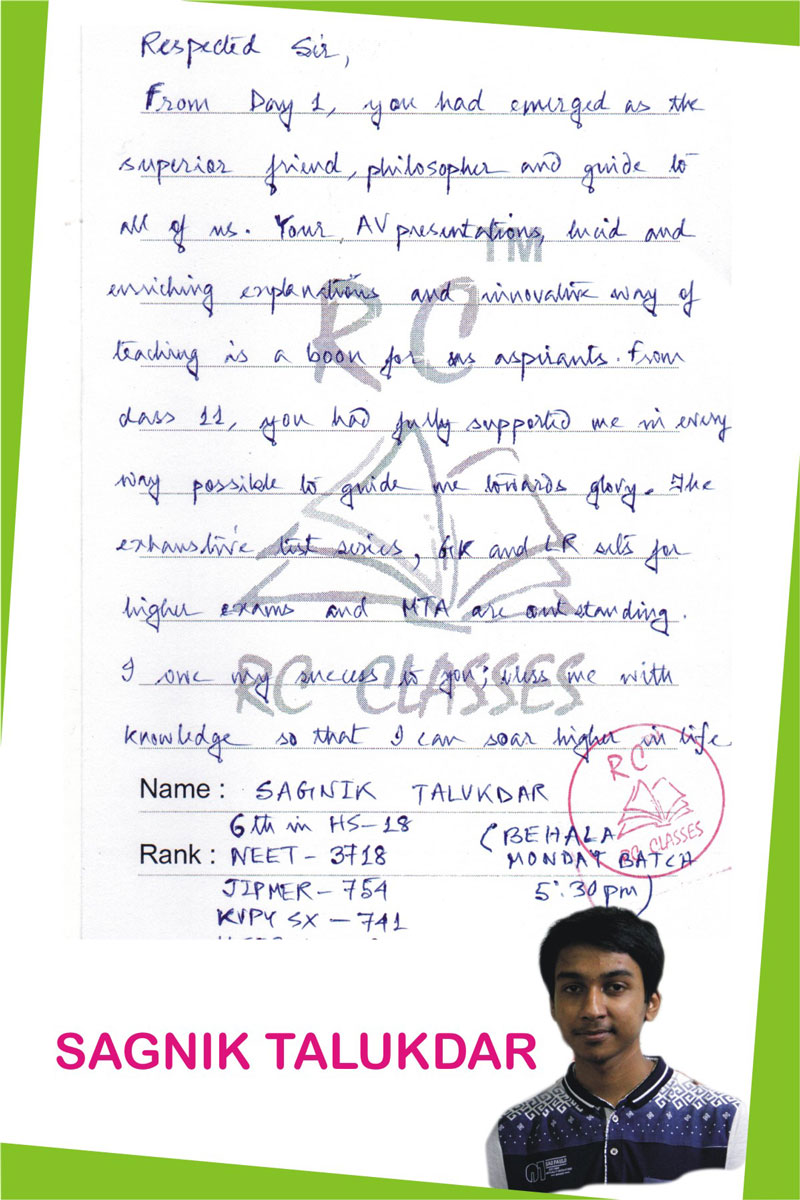 Respected Sir,
From Day 1, you had emerged as the
superior friend, philosopher and guide to
all of us. Your, AV presentations, lucid and
TM
enriching explanations and innovative way of
RC
teaching is a boon for us aspirants. From
class 11, you had fully supported me in every
way possible to guide me towards glory. The
exhaustive test series, GK and LR sets for
higher exams and MTA are outstanding.
I owe my success to you; bless me with
RC CLASSES
knowledge so that I can soar higher in life
RC
RC CLASSES
Name : SAGNIK TALUKDAR
6th in HS-18
(BEHALA
Rank : NEET - 3718
MONDAY BATCH
JIPMER - 754
5:30pm)
KVPY SX - 741
SAGNIK TALUKDAR
01
SAO PAULO